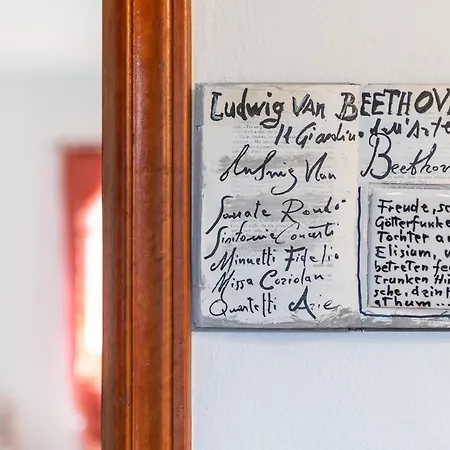 Ludwig VAN BEETHOV
Il Giardino dell'Arte
Ludwig Van Beethov
Sonate Rondò
Sinfonie Concerti
Minuetti Fidelio
Missa Coriolan
Quartetti Arie
Freude, sc
Götterfunke
Tochter au
Elisium, w
betreten feu
trunken Him
sche, dein H
athum.